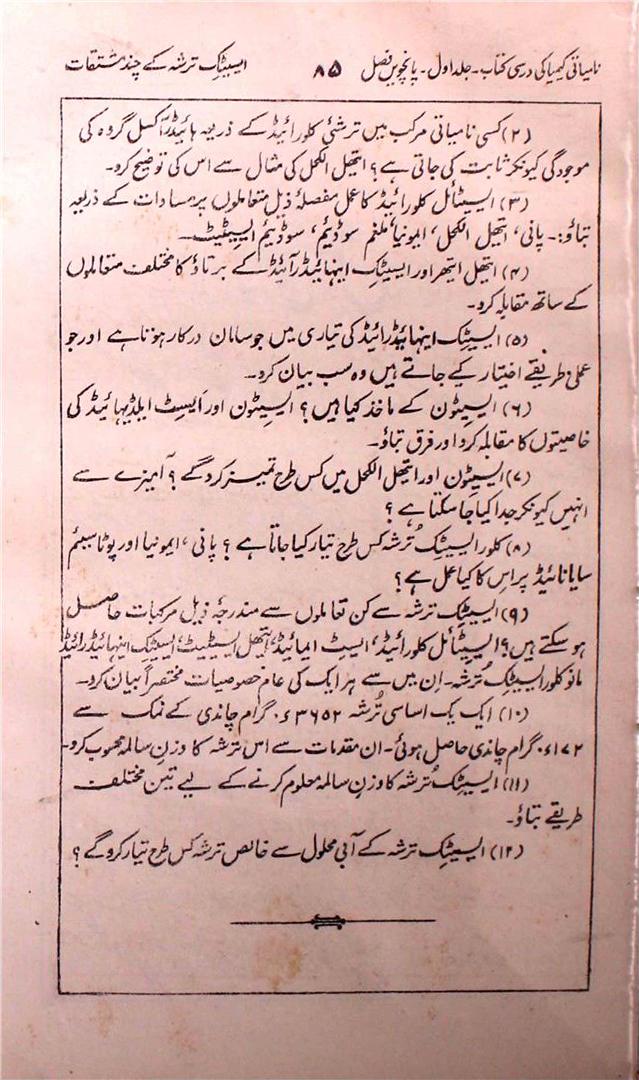 نامیاتی کیمیا کی درسی کتاب۔ جلد اول۔ پانچویں فصل ۸۵ ایسیٹک ترشہ کے چند مشتقات
(۲) کسی نامیاتی مرکب میں ترشئی کلورائیڈ کے ذریعہ ہائیڈرآکسل گروہ کی
موجودگی کیونکر ثابت کی جاتی ہے؟ ایتھیل الکحل کی مثال سے اس کی توضیح کرو۔
(۳) ایسیٹائل کلورائیڈ کا عمل مفصلۂ ذیل متعاملوں پر مساوات کے ذریعہ
بتاؤ:۔ پانی، ایتھیل الکحل، امیونیا، ملغم سوڈیئم، سوڈیئم ایسیٹیٹ۔
(۴) ایتھیل ایتھر اور ایسیٹک اینہائیڈرآئیڈ کے برتاؤ کا مختلف متعاملوں
کے ساتھ مقابلہ کرو۔
(۵) ایسیٹک اینہائیڈرائیڈ کی تیاری میں جو سامان درکار ہوتا ہے اور جو
عملی طریقے اختیار کیے جاتے ہیں وہ سب بیان کرو۔
(۶) ایسیٹون کے ماخذ کیا ہیں؟ ایسیٹون اور ایسٹ ایلڈیہائیڈ کی
خاصیتوں کا مقابلہ کرو اور فرق بتاؤ۔
(۷) ایسیٹون اور ایتھیل الکحل میں کس طرح تمیز کرو گے؟ آمیزے سے
انہیں کیونکر جدا کیا جا سکتا ہے؟
(۸) کلور ایسیٹک تُرشہ کس طرح تیار کیا جاتا ہے؟ پانی، امیونیا اور پوٹاسیئم
سایانائیڈ پر اِس کا کیا عمل ہے؟
(۹) ایسیٹک ترشہ سے کن تعاملوں سے مندرجۂ ذیل مرکبات حاصل
ہو سکتے ہیں؟ ایسیٹائل کلورائیڈ، ایسٹ ایمائیڈ، ایتھیل ایسیٹیٹ، ایسیٹک اینہائیڈرائیڈ
مانو کلور ایسیٹک تُرشہ۔ اِن میں سے ہر ایک کی عام خصوصیات مختصراً بیان کرو۔
(۱۰) ایک یک اساسی تُرشہ ۳۶۵۲ء۰ گرام چاندی کے نمک سے
۱۷۲ء۰ گرام چاندی حاصل ہوئی۔ ان مقدمات سے اس ترشہ کا وزن سالمہ محسوب کرو۔
(۱۱) ایسیٹک تُرشہ کا وزن سالمہ معلوم کرنے کے لیے تین مختلف
طریقے بتاؤ۔
(۱۲) ایسیٹک ترشہ کے آبی محلول سے خالص ترشہ کس طرح تیار کرو گے؟